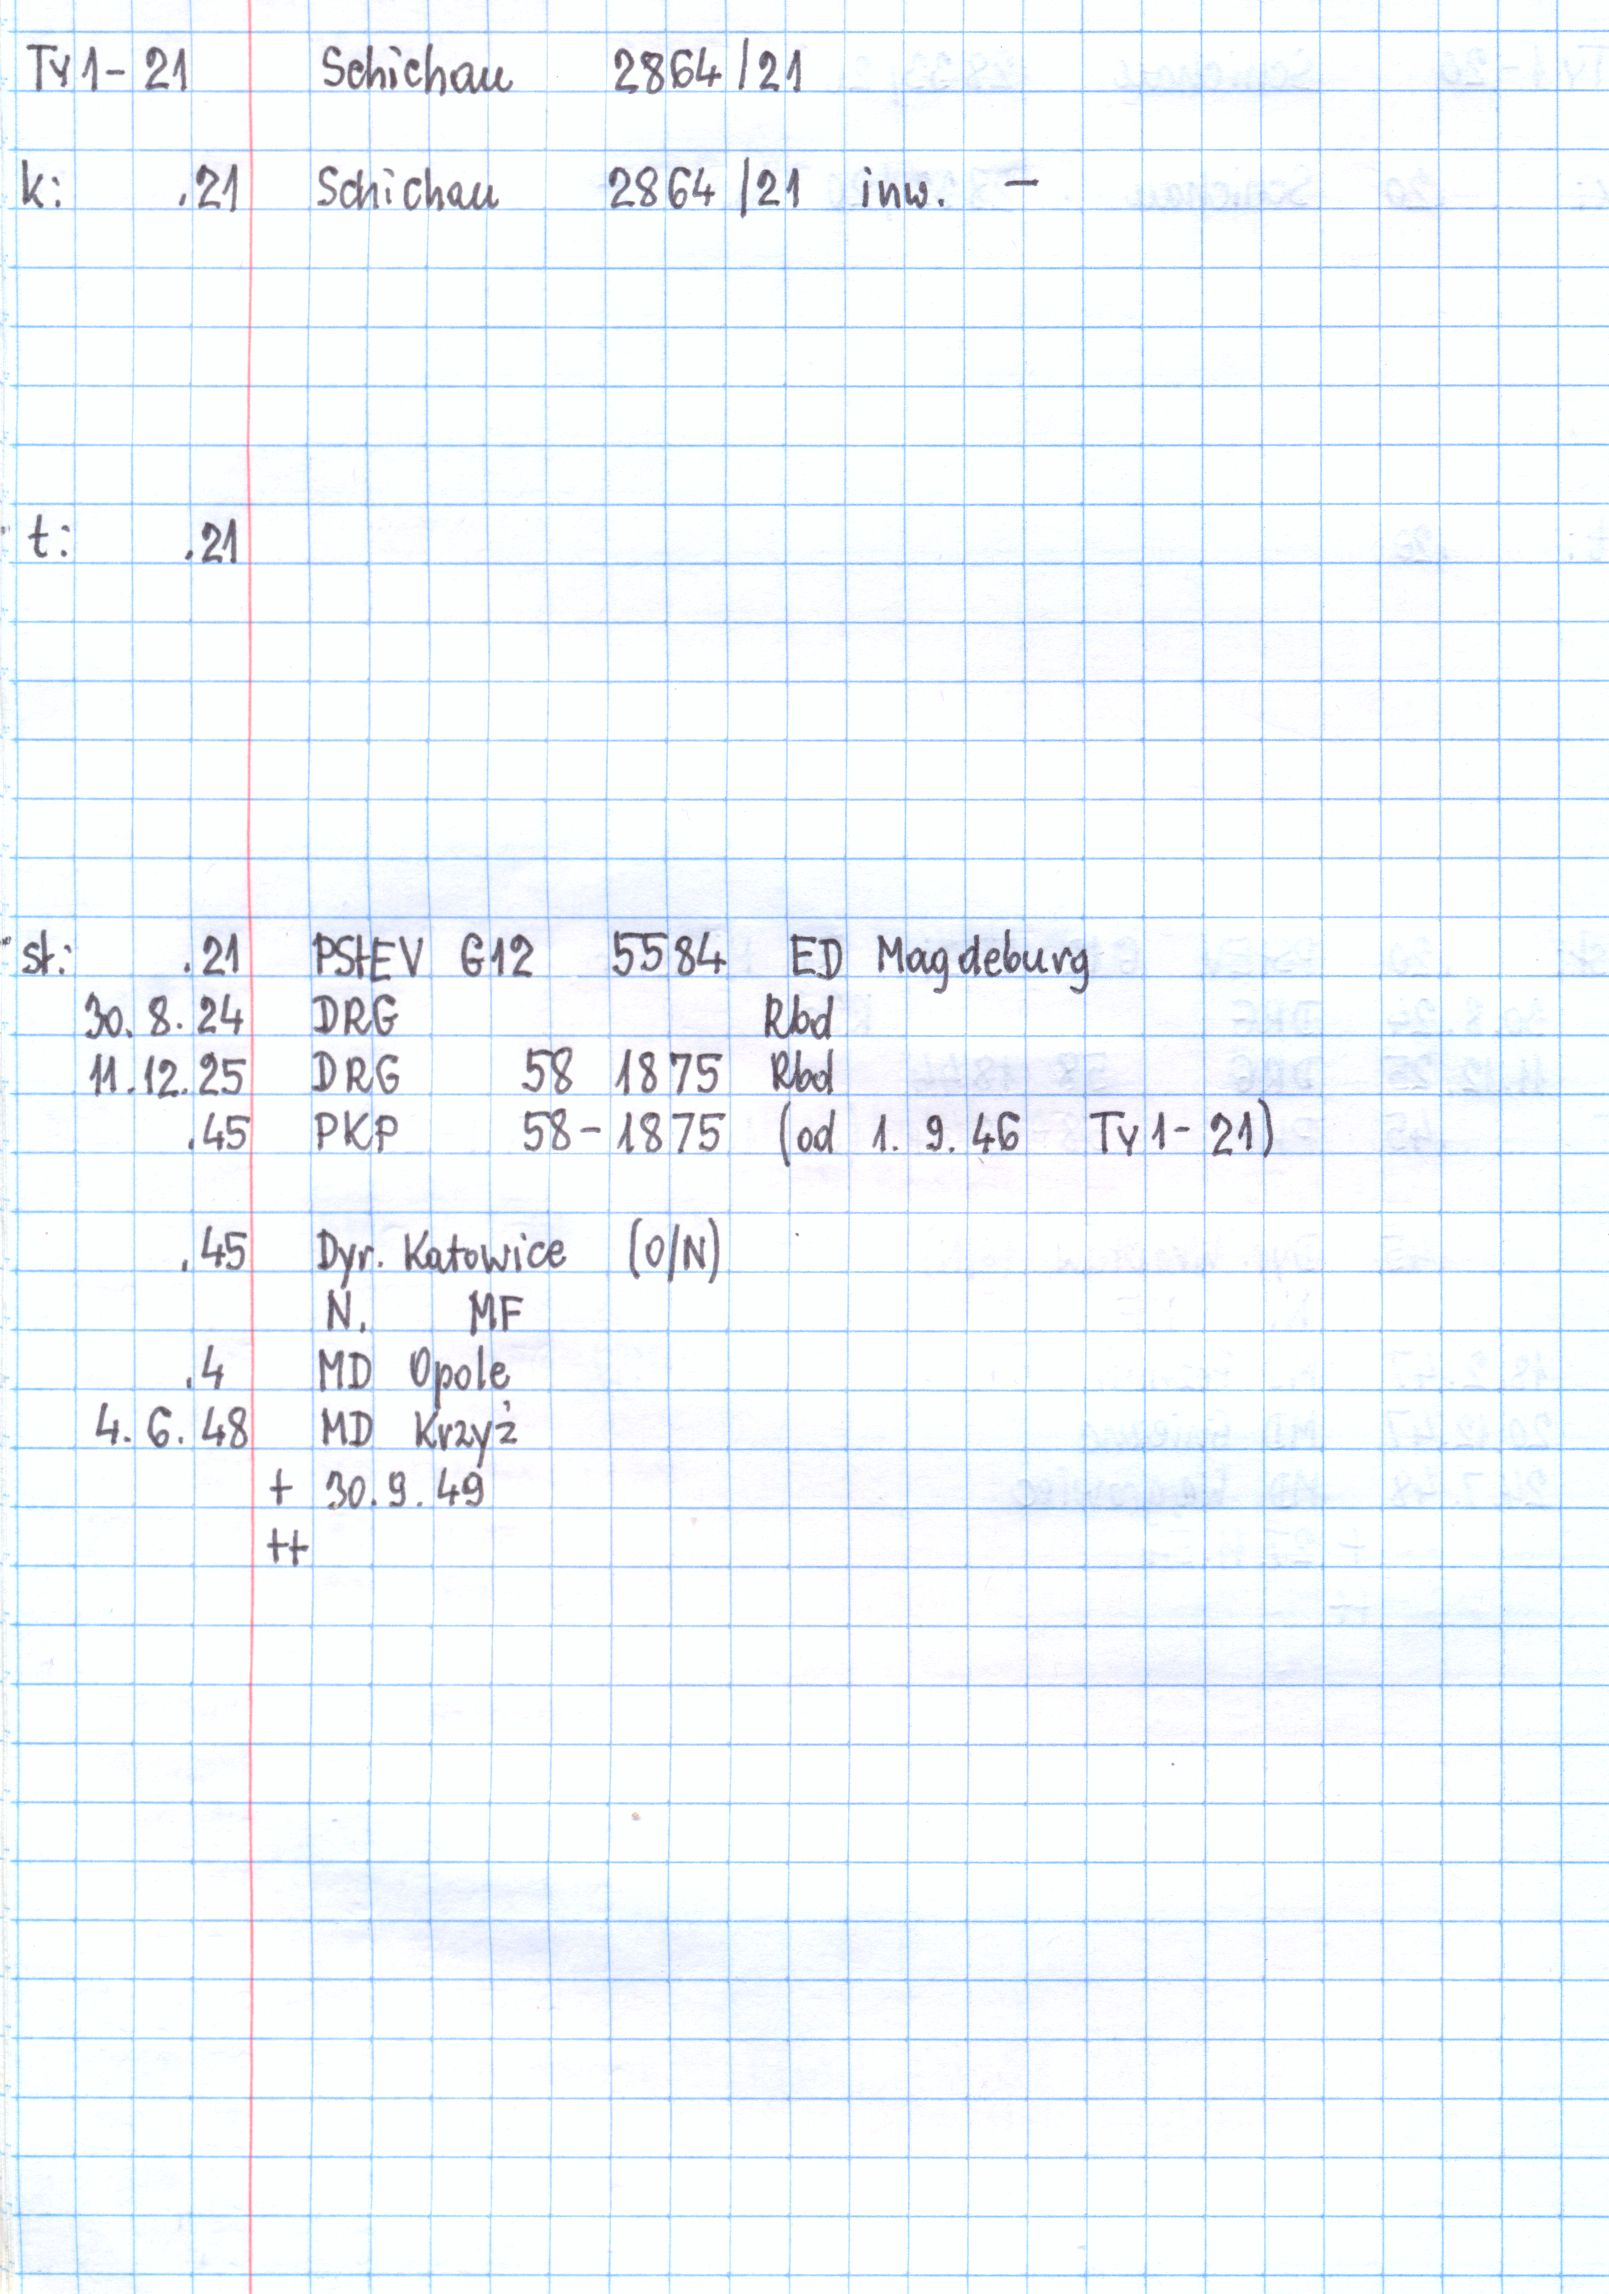 Ty1-21 Schichau 2864/21
k: .21 Schichau 2864/21 inw. –
t: .21
st: .21 PStEV G12 5584 ED Magdeburg
30.8.24 DRG Rbd
11.12.25 DRG 58 1875 Rbd
.45 PKP 58-1875 (od 1.9.46 Ty1-21)
.45 Dyr. Katowice (O/N)
N. MF
.4 MD Opole
4.6.48 MD Krzyż
+ 30.9.49
++